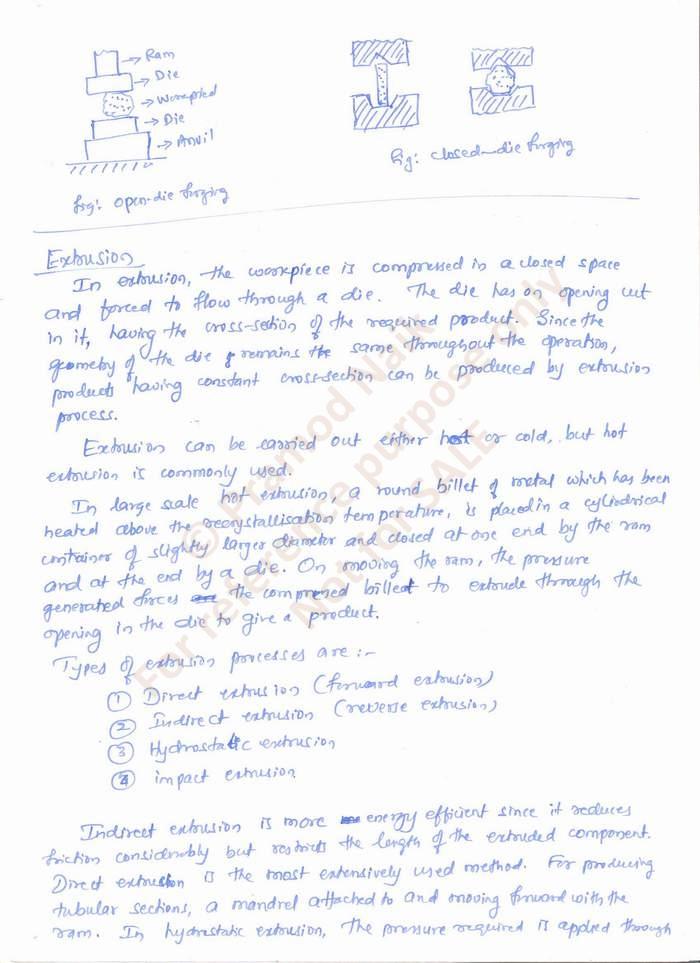 Ram
Die
Workpied
Die
Anvil
fig: open-die forging
fig: closed-die forging
Extrusion
In extrusion, the workpiece is compressed in a closed space
and forced to flow through a die. The die has an opening cut
in it, having the cross-section of the required product. Since the
geometry of the die remains the same throughout the operation,
products having constant cross-section can be produced by extrusion
process.
Extrusion can be carried out either hot or cold, but hot
extrusion is commonly used.
In large scale hot extrusion, a round billet of metal which has been
heated above the recrystallisation temperature, is placed in a cylindrical
container of slightly larger diameter and closed at one end by the ram
and at the end by a die. On moving the ram, the pressure
generated forces the compressed billet to extrude through the
opening in the die to give a product.
Types of extrusion processes are :-
① Direct extrusion (forward extrusion)
② Indirect extrusion (reverse extrusion)
③ Hydrostatic extrusion
④ impact extrusion
Indirect extrusion is more energy efficient since it reduces
friction considerably but restricts the length of the extruded component.
Direct extrusion is the most extensively used method. For producing
tubular sections, a mandrel attached to and moving forward with the
ram. In hydrostatic extrusion, the pressure required is applied through
© Pramod Naik
For reference purpose only
Not for SALE